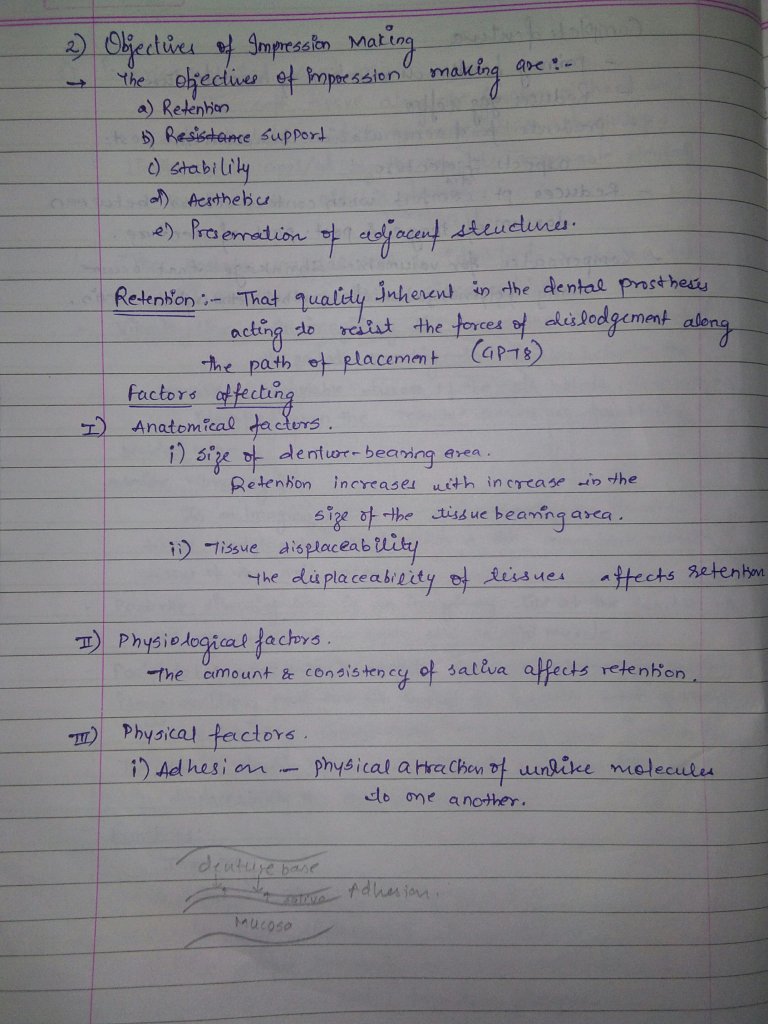 2) Objectives of Impression Making
→ The objectives of Impression making are :-
a) Retention
b) Resistance support
c) stability
d) Aesthetics
e) Preservation of adjacent structures.
Retention :- That quality inherent in the dental prosthesis
acting to resist the forces of dislodgement along
the path of placement (GPT8)
Factors affecting
I) Anatomical factors.
i) Size of denture-bearing area.
Retention increases with increase in the
size of the tissue bearing area.
ii) Tissue displaceability
The displaceability of tissues affects retention
II) Physiological factors.
The amount & consistency of saliva affects retention.
III) Physical factors.
i) Adhesion - physical attraction of unlike molecules
to one another.
denture base
saliva Adhesion.
Mucosa